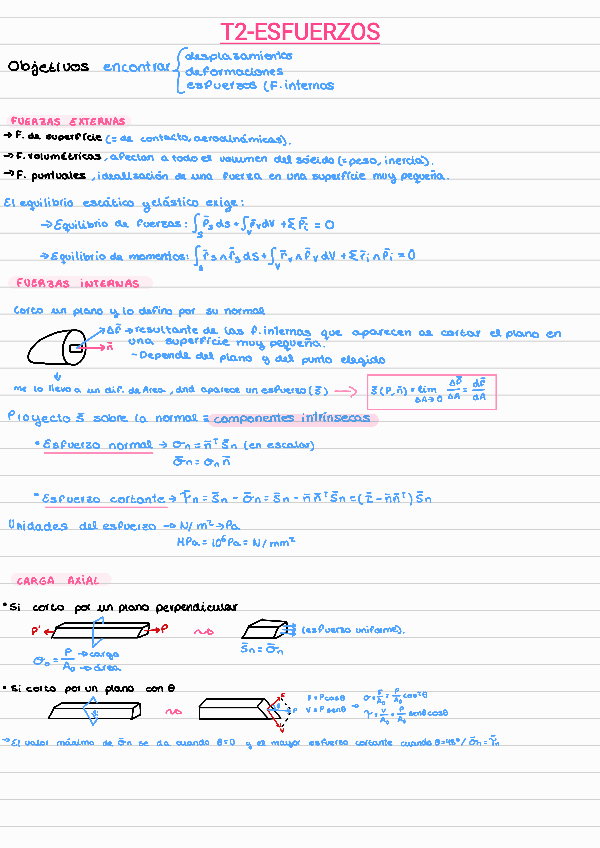 T2-ESFUERZOS
Objetivos encontrar { desplazamientos
deformaciones
esfuerzos (F. internos
FUERZAS EXTERNAS
→ F. de superficie (= de contacto, aerodinámicas).
→ F. volumétricas, afectan a todo el volumen del sólido (= peso, inercia).
→ F. puntuales, idealización de una fuerza en una superficie muy pequeña.
El equilibrio estático y elástico exige:
→ Equilibrio de fuerzas: ∫_S P̄s dS + ∫_V P̄v dV + Σ P̄i = 0
→ Equilibrio de momentos: ∫_S r̄s ∧ P̄s dS + ∫_V r̄v ∧ P̄v dV + Σ r̄i ∧ P̄i = 0
FUERZAS INTERNAS
Corto un plano y lo defino por su normal
ΔP̄ → resultante de las f. internas que aparecen al cortar el plano en
una superficie muy pequeña.
n̄ - Depende del plano y del punto elegido
me lo llevo a un dif. de Area, dnd aparece un esfuerzo (s̄) → s̄ (P, n̄) = lim ΔA→0 ΔP̄/ΔA = dP̄/dA
Proyecto s̄ sobre la normal = componentes intrínsecas
• Esfuerzo normal → σn = n̄ᵀ s̄n (en escalar)
σ̄n = σn n̄
• Esfuerzo cortante → τ̄n = s̄n - σ̄n = s̄n - n̄ n̄ᵀ s̄n = (I - n̄n̄ᵀ) s̄n
Unidades del esfuerzo → N/m² → Pa
MPa = 10⁶ Pa = N/mm²
CARGA AXIAL
• Si corto por un plano perpendicular
P' P (esfuerzo uniforme).
σ₀ = P/A₀ → carga → área s̄n = σ̄n
• Si corto por un plano con θ
F = P cosθ → σ = F/Aθ = P/A₀ cos²θ
V = P senθ τ = V/Aθ = P/A₀ senθ cosθ
→ El valor máximo de σ̄n se da cuando θ=0 y el mayor esfuerzo cortante cuando θ=45° / σ̄n = τ̄n